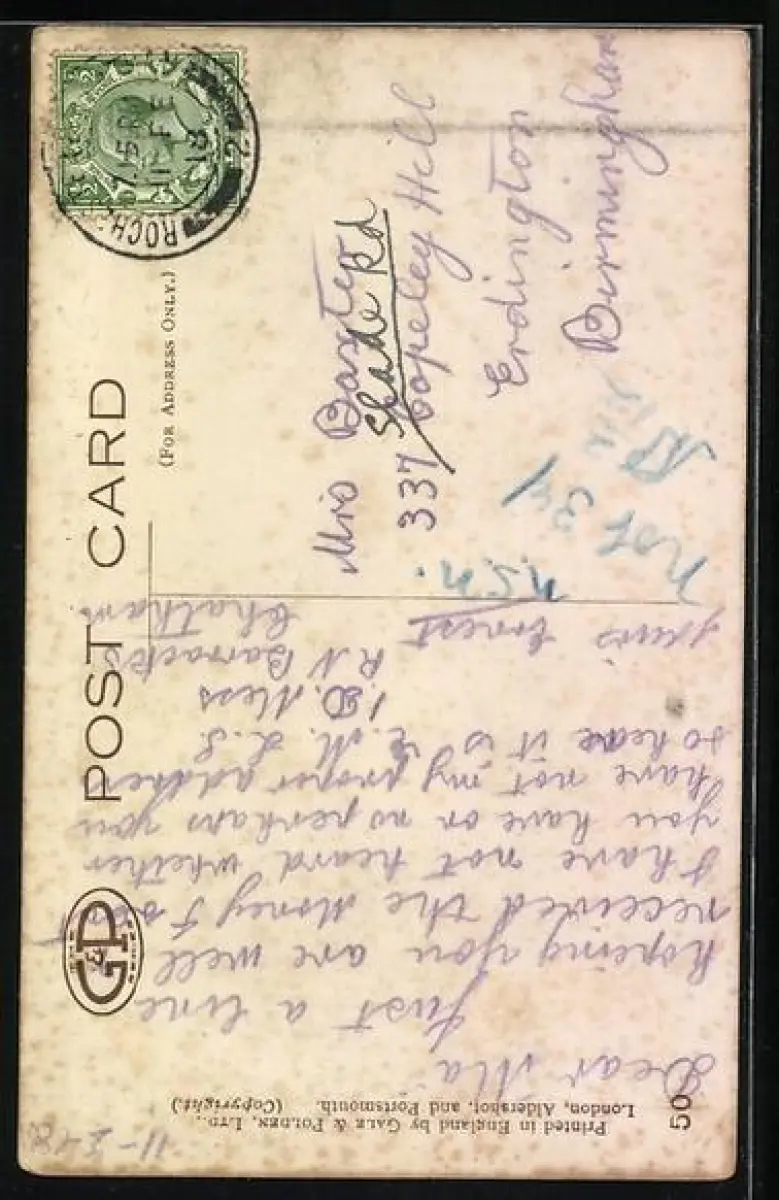 POST CARD
(FOR ADDRESS ONLY.)
GP
ROCH
7.15 P
11 FE
18
2
Miss Baxter
Slade Rd
337 Copeley Hill
Erdington
Birmingham
not 337
n.s.n.
50
Printed in England by GALE & POLDEN, LTD.,
London, Aldershot, and Portsmouth. (Copyright.)
Dear Ma
Just a line
hopeing you are well
received the Money I sent
I have not heard whether
you have or no perhaps you
have not my proper address
so heare it is E. M. L. S.
1. D. Mess
R N Barracks
Chatham
yours Ernest
11-2-18